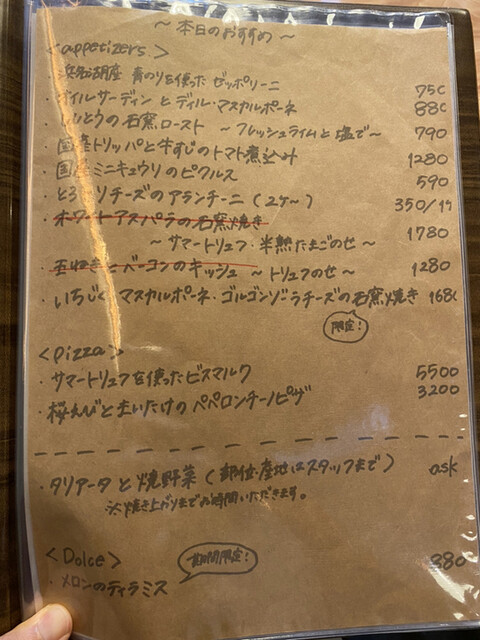 ～ 本日のおすすめ ～
<appetizers>
・浜名湖産 青のりを使った ゼッポリーニ 750
・オイルサーディン と ディル・マスカルポーネ 880
・ししとうの 石窯ロースト ～ フレッシュライムと 塩で～ 790
・国産トリッパと牛すじのトマト煮込み 1280
・国産ミニキュウリのピクルス 590
・とろ～りチーズのアランチーニ (2ケ～) 350/1ケ
・ホワイトアスパラの石窯焼き
～ サマートリュフ・半熟たまごのせ ～ 1780
・玉ねぎとベーコンのキッシュ ～ トリュフのせ ～ 1280
・いちじく・マスカルポーネ・ゴルゴンゾラチーズの石窯焼き 1680
限定!
<pizza>
・サマートリュフを使ったビスマルク 5500
・桜えびとまいたけの ペペロンチーノピザ 3200
・タリアータ と 焼野菜 (部位・産地はスタッフまで) ask
※焼き上がりまでお時間いただきます。
<Dolce> 期間限定!
・メロンのティラミス 880